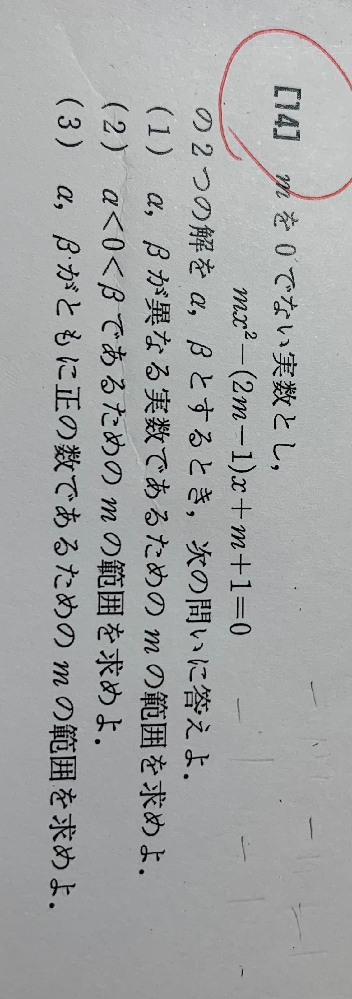 [14] mを0でない実数とし,
mx²−(2m−1)x+m+1=0
の2つの解をα, βとするとき, 次の問いに答えよ.
(1) α, βが異なる実数であるためのmの範囲を求めよ.
(2) α<0<βであるためのmの範囲を求めよ.
(3) α, βがともに正の数であるためのmの範囲を求めよ.